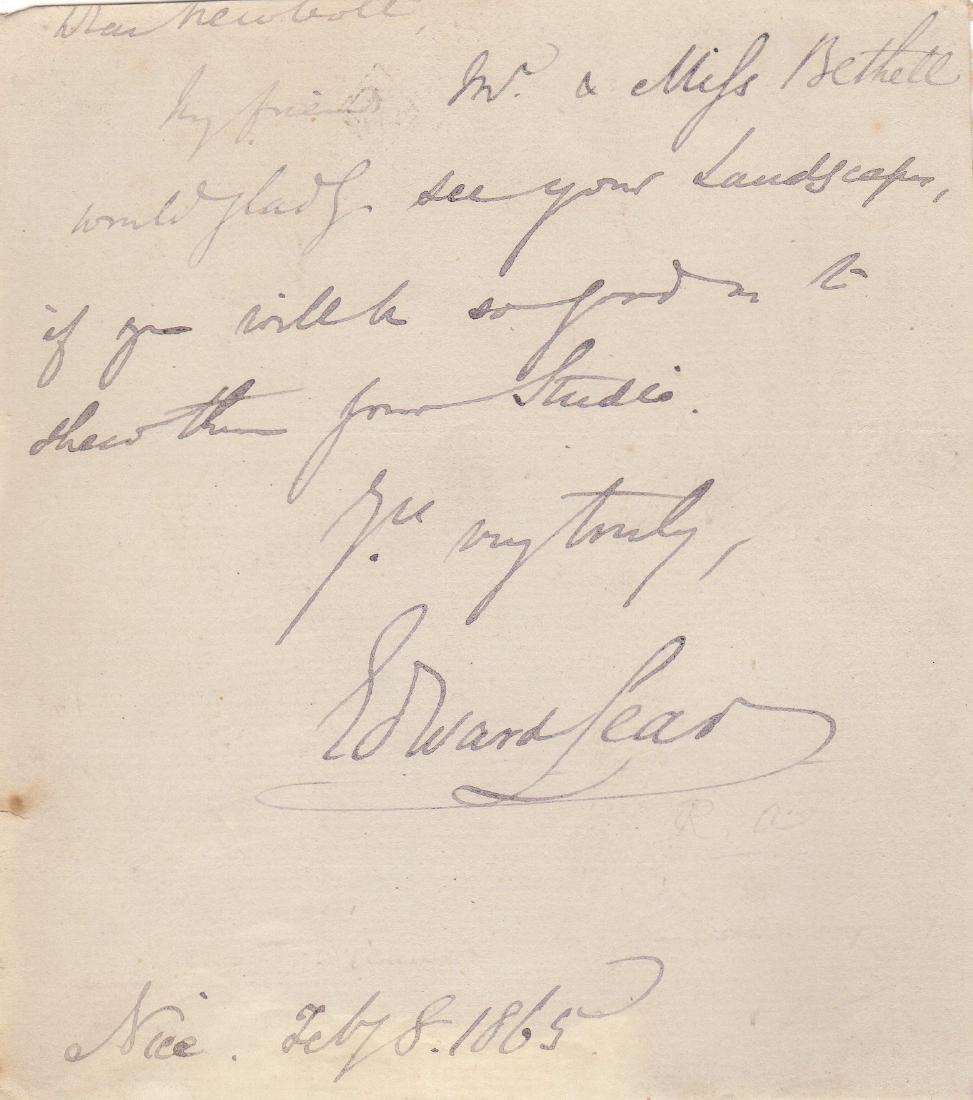 Dear Newbolt,
My friends Mr. & Miss Bethell
would gladly see your Landscapes,
if you will be so good as to
shew them your Studio.
Yrs. very truly,
Edward Lear
R. A.
Nice. Feby 8. 1865